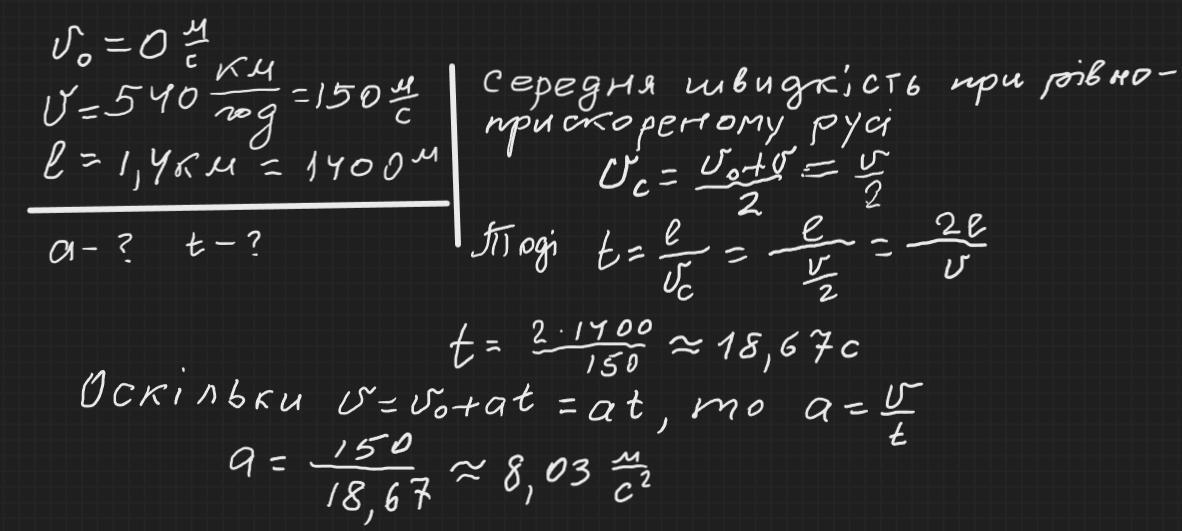 υ₀ = 0 м/с
υ = 540 км/год = 150 м/с
l = 1,4км = 1400 м
a - ? t - ?
Середня швидкість при рівно-
прискореному русі
υc = (υ₀+υ)/2 = υ/2
Тоді t = l/υc = l/(υ/2) = 2l/υ
t = (2·1400)/150 ≈ 18,67с
Оскільки υ = υ₀+at = at, то a = υ/t
a = 150/18,67 ≈ 8,03 м/с²